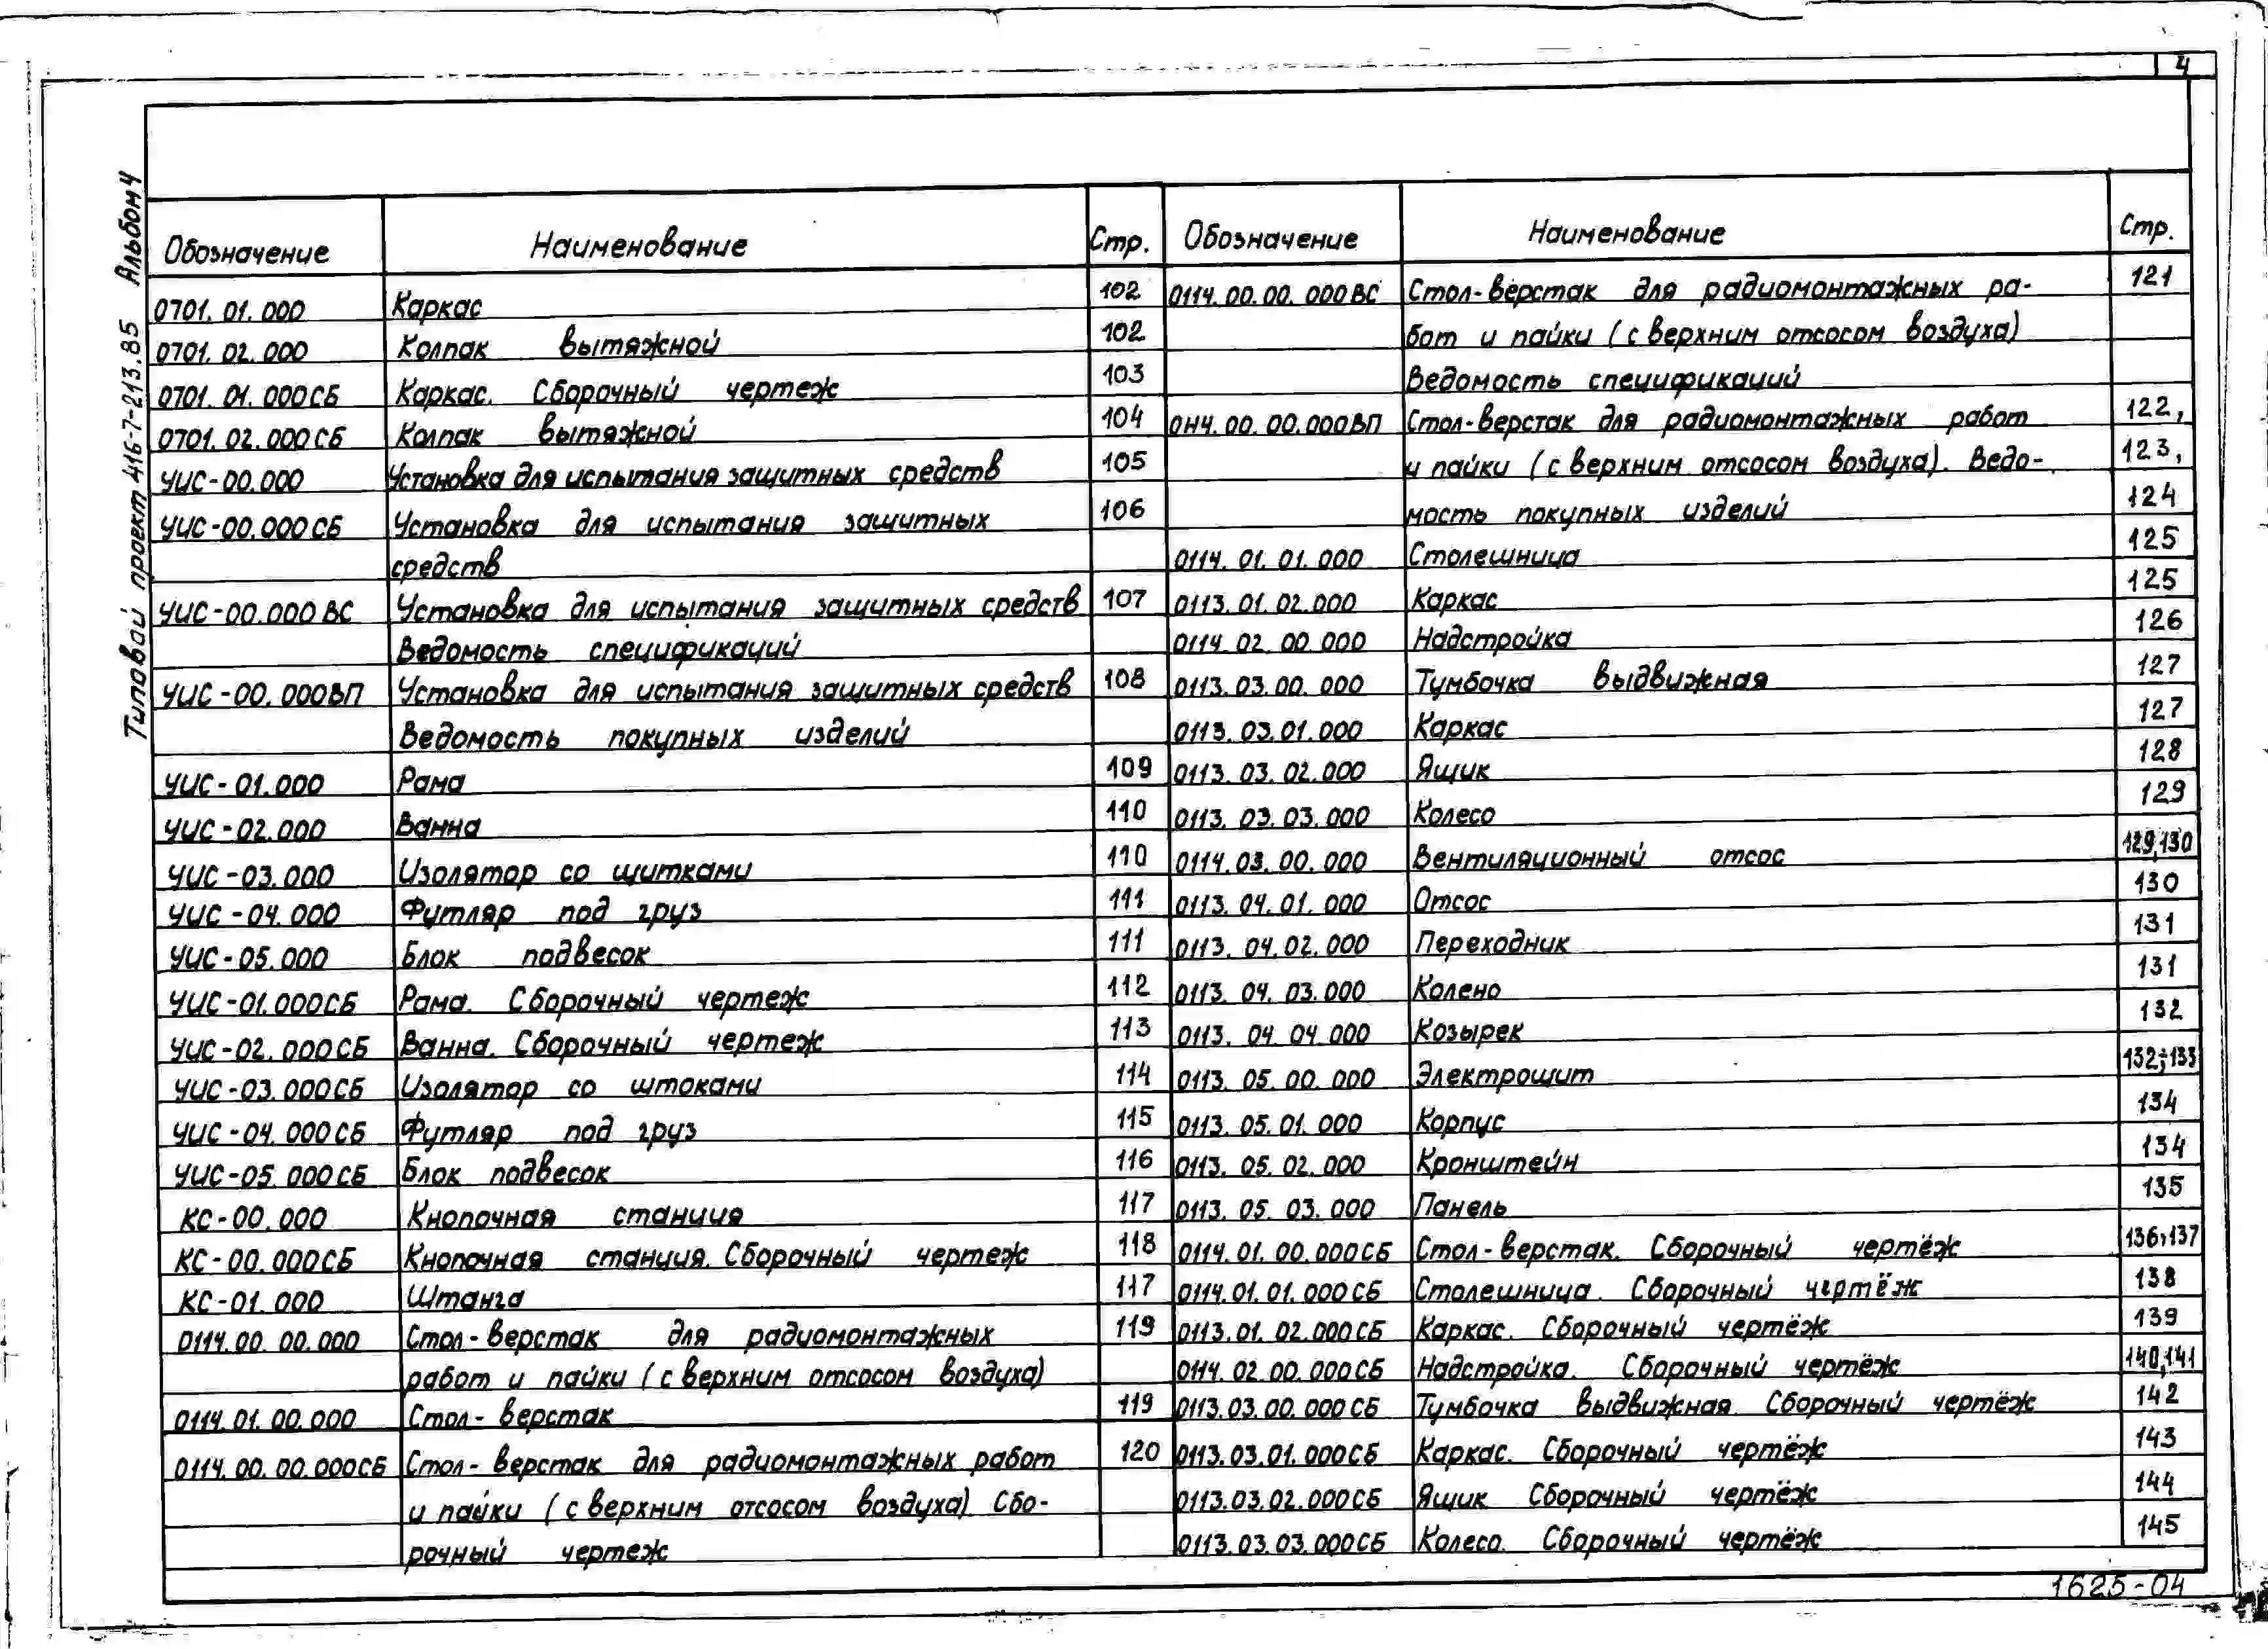 4
Типовой проект 416-7-213.85 Альбом 4
Обозначение Наименование Стр.
0701.01.000 Каркас 102
0701.02.000 Колпак вытяжной 102
0701.01.000СБ Каркас. Сборочный чертеж 103
0701.02.000СБ Колпак вытяжной 104
УИС-00.000 Установка для испытания защитных средств 105
УИС-00.000СБ Установка для испытания защитных 106
средств
УИС-00.000ВС Установка для испытания защитных средств 107
Ведомость спецификаций
УИС-00.000ВП Установка для испытания защитных средств 108
Ведомость покупных изделий
УИС-01.000 Рама 109
УИС-02.000 Ванна 110
УИС-03.000 Изолятор со щитками 110
УИС-04.000 Футляр под груз 111
УИС-05.000 Блок подвесок 111
УИС-01.000СБ Рама. Сборочный чертеж 112
УИС-02.000СБ Ванна. Сборочный чертеж 113
УИС-03.000СБ Изолятор со штоками 114
УИС-04.000СБ Футляр под груз 115
УИС-05.000СБ Блок подвесок 116
КС-00.000 Кнопочная станция 117
КС-00.000СБ Кнопочная станция. Сборочный чертеж 118
КС-01.000 Штанга 117
0114.00.00.000 Стол-верстак для радиомонтажных 119
работ и пайки (с верхним отсосом воздуха)
0114.01.00.000 Стол-верстак 119
0114.00.00.000СБ Стол-верстак для радиомонтажных работ 120
и пайки (с верхним отсосом воздуха) Сбо-
рочный чертеж
Обозначение Наименование Стр.
0114.00.00.000ВС Стол-верстак для радиомонтажных ра- 121
бот и пайки (с верхним отсосом воздуха)
Ведомость спецификаций
0Н4.00.00.000ВП Стол-верстак для радиомонтажных работ 122,
и пайки (с верхним отсосом воздуха). Ведо- 123,
мость покупных изделий 124
0114.01.01.000 Столешница 125
0113.01.02.000 Каркас 125
0114.02.00.000 Надстройка 126
0113.03.00.000 Тумбочка выдвижная 127
0113.03.01.000 Каркас 127
0113.03.02.000 Ящик 128
0113.03.03.000 Колесо 129
0114.03.00.000 Вентиляционный отсос 129,130
0113.04.01.000 Отсос 130
0113.04.02.000 Переходник 131
0113.04.03.000 Колено 131
0113.04.04.000 Козырек 132
0113.05.00.000 Электрощит 132÷133
0113.05.01.000 Корпус 134
0113.05.02.000 Кронштейн 134
0113.05.03.000 Панель 135
0114.01.00.000СБ Стол-верстак. Сборочный чертёж 136,137
0114.01.01.000СБ Столешница. Сборочный чертёж 138
0113.01.02.000СБ Каркас. Сборочный чертёж 139
0114.02.00.000СБ Надстройка. Сборочный чертёж 140,141
0113.03.00.000СБ Тумбочка выдвижная. Сборочный чертёж 142
0113.03.01.000СБ Каркас. Сборочный чертёж 143
0113.03.02.000СБ Ящик Сборочный чертёж 144
0113.03.03.000СБ Колесо. Сборочный чертёж 145
1625-04